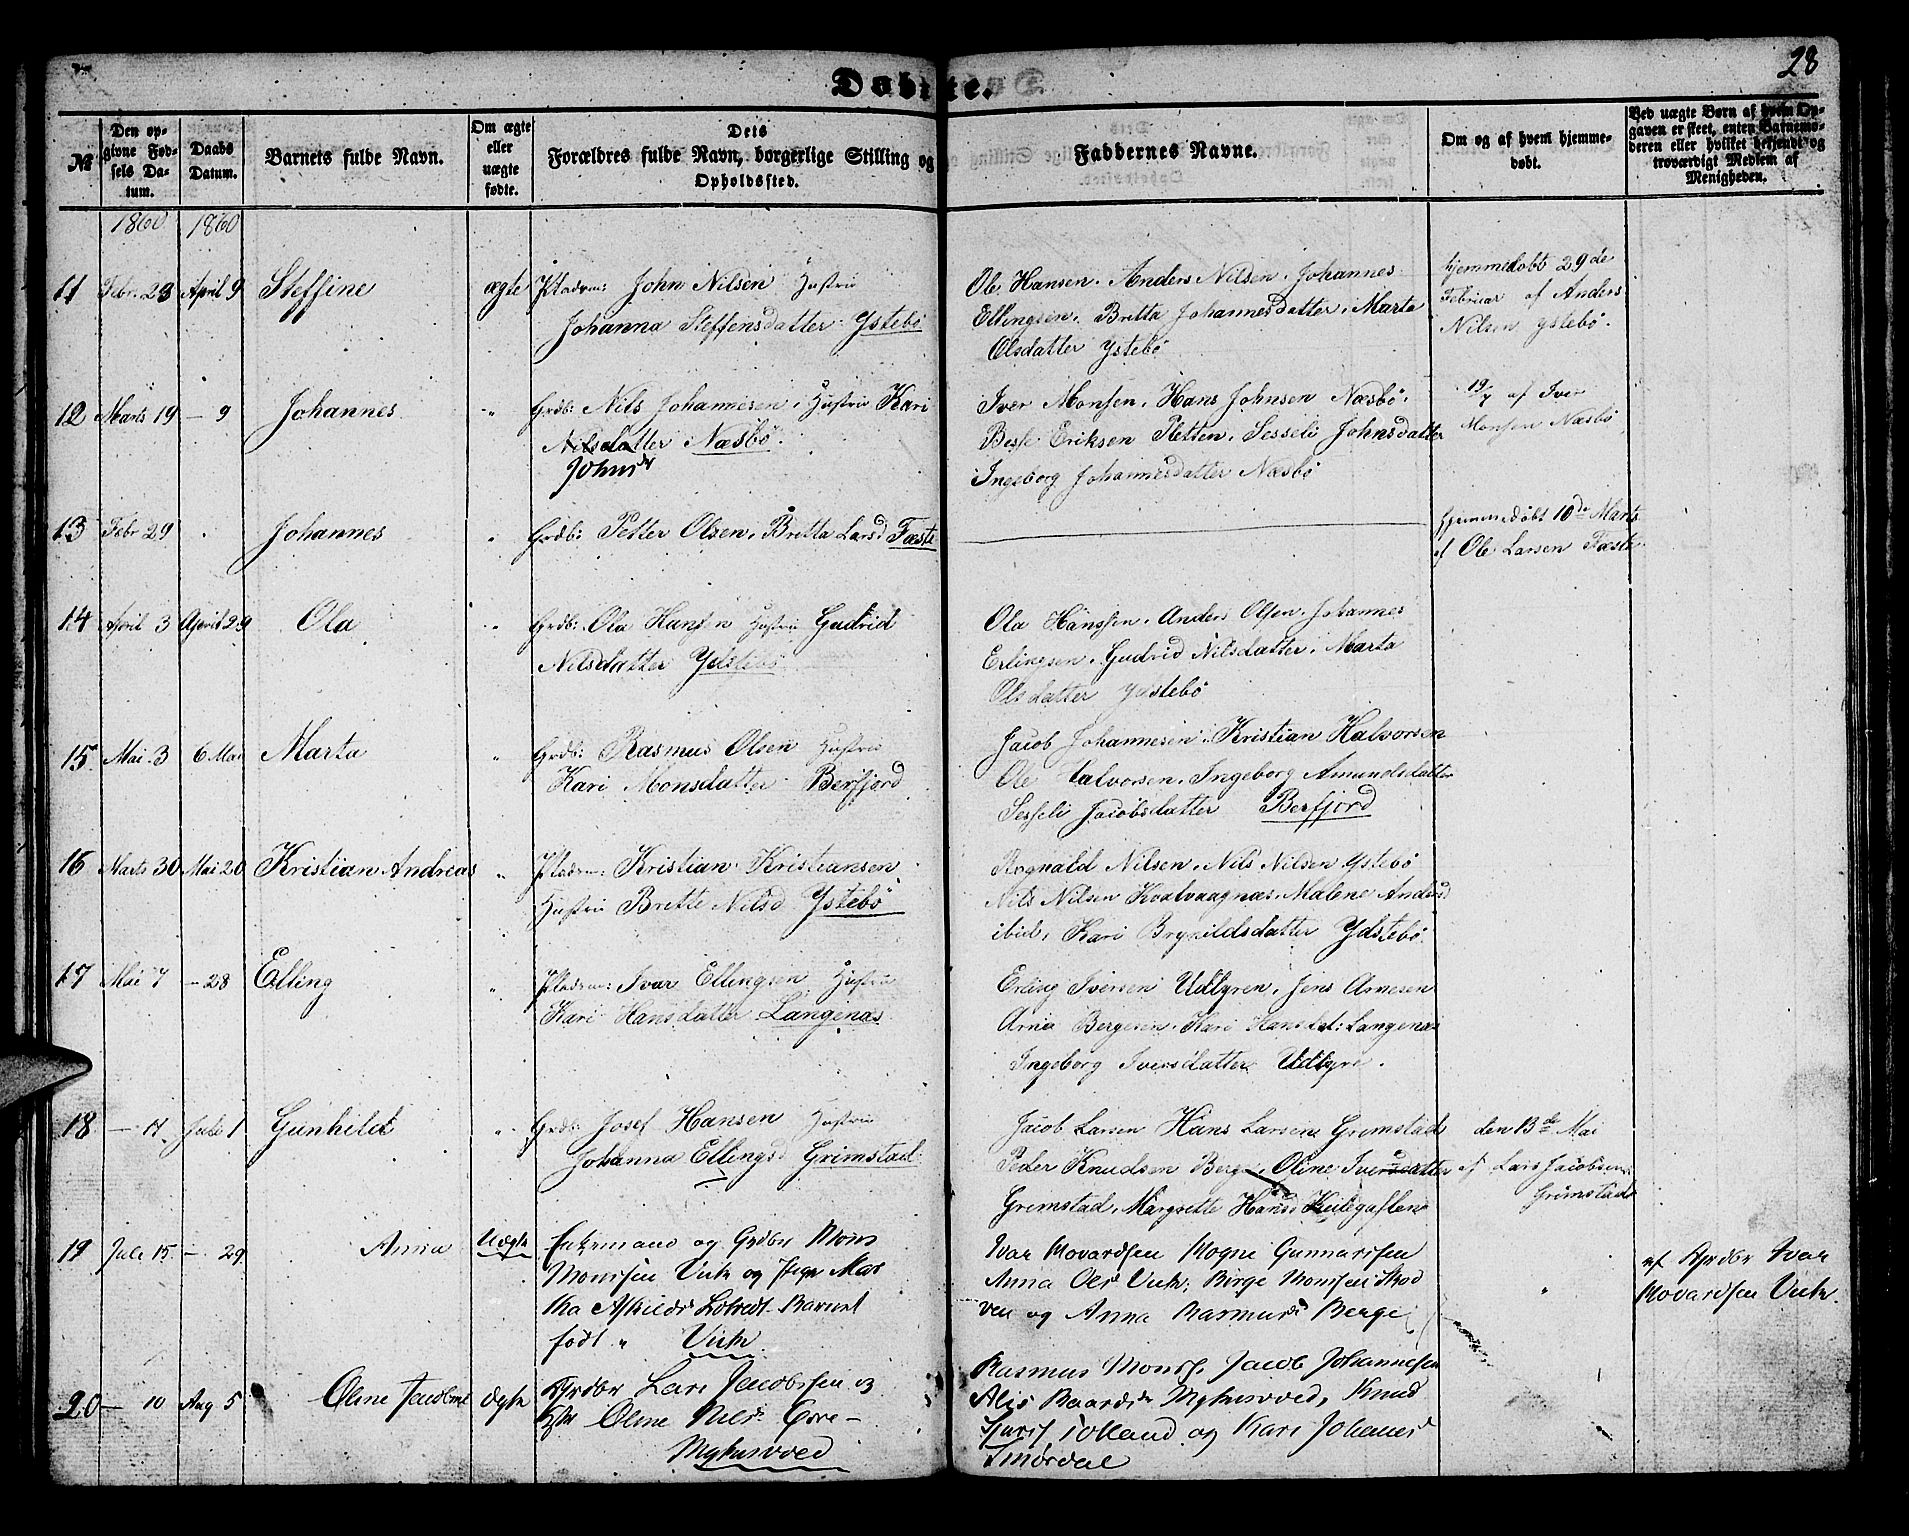 28
Døbte.
№
Den op-
givne Fød-
sels Da-
tum.
Daabs
Datum.
Barnets fulde Navn.
Om ægte
eller
uægte
fødte.
Dets
Forældres fulde Navn, borgerlige Stilling og
Opholdssted.
Faddernes Navne.
Om og af hvem hjemme-
døbt.
Ved uægte Børn af hvem Op-
gaven er skeet, enten Barnemo-
deren eller hvilket bekjendt og
troværdigt Medlem af
Menigheden.
1860 1860
11 Febr. 23 April 9 Steffine ægte Pladsm: John Nilsen Hustrue
Johanna Steffensdatter Ystebö
Ole Hansen. Anders Nilsen. Johannes
Ellingsen. Britta Johannesdatter. Marta
Olsdatter Ystebö
hjemmedöbt 29de
Februar af Anders
Nilsen Ystebö.
12 Marts 19 – 9 Johannes " Grdb: Nils Johannesen. Hustrue Kari
Nilsdatter Næsbö.
Johnsdr
Iver Monsen. Hans Johnsen Næsbö.
Eriksen Sletten. Sesseli Johnsdatter
Ingeborg Johannesdatter Næsbö
19/ af Iver
Monsen Næsbö
13 Febr 29 Johannes " Grdb: Petter Olsen. Bretta Larsd Fæste
hjemmedöbt 10de Marts
af Ole Larsen Fæste
14 April 3 April 29 Ola " Grdb: Ola Hansen Hustrue Gudrid
Nilsdatter Ydstebö
Ola Hanssen. Anders Olsen. Johannes
Erlingsen. Gudrid Nilsdatter. Marta
Olsdatter Ydstebö
15 Mai 3 6 Mai Marta " Grdb: Rasmus Olsen Hustrue
Kari Monsdatter Berfjord
Jacob Johannesen. Kristian Halvorsen
Ole Halvorsen. Ingeborg Amundsdatter
Sesseli Jacobsdatter Berfjord
16 Marts 30 Mai 20 Kristian Andreas " Pladsm: Kristian Kristiansen
Hustrue Britte Nilsd Ystebö
Rognald Nilsen. Nils Nilsen Ystebö
Nils Nilsen Kvalvaagnæs. Malene Andersd
ibid. Kari Brynildsdatter Ydstebö
17 Mai 7 – 28 Elling " Pladsm: Ivar Ellingsen Hustrue
Kari Hansdatter Langenæs
Erling Iversen Udtyren. Jens Arnesen
Arna Bergesen. Kari Hansdat: Langenæs
Ingeborg Iversdatter Udtyre.
18 – 11 Juli 1 Gunhild " Grdb: Josef Hansen Hustrue
Johanna Ellingsd Grimstad
Jacob Larsen Hans Larsen Grimstad
Peder Knudsen Berge. Oline Iversdatter
Grimstad. Margrette Hansd
den 13de Mai
af Lars Jacobsen
Grimstad
19 Juli 15 – 29 Anna Uægte Enkemand og Grdbr Mons
Monssen Viik og Pige Mar
tha Askilds Barnet
födt " Viik
Ivar Hovardsen Mogne Gunnarssen
Anna Ols Viik. Börge Monssen Skod
ven og Anna Rasmusd Berge
" af Grdbr Ivar
Hovardsen Viik.
20 – 10 Aug 5 Oline Jacobine Ægte Grdbr Lars Jacobssen og
Oline Nilsd
Myksvoed
Rasmus Monss. Jacob Johannesen
Alis Baardsd Myksvoed, Knud
Tolland og Kari Johannesd
Smördal